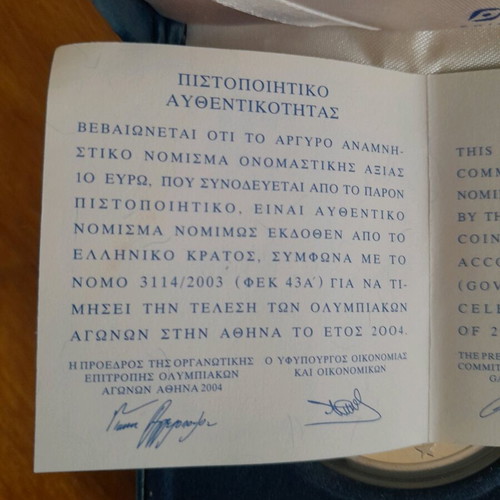 ΠΙΣΤΟΠΟΙΗΤΙΚΟ
ΑΥΘΕΝΤΙΚΟΤΗΤΑΣ
ΒΕΒΑΙΩΝΕΤΑΙ ΟΤΙ ΤΟ ΑΡΓΥΡΟ ΑΝΑΜΝΗ-
ΣΤΙΚΟ ΝΟΜΙΣΜΑ ΟΝΟΜΑΣΤΙΚΗΣ ΑΞΙΑΣ
10 ΕΥΡΩ, ΠΟΥ ΣΥΝΟΔΕΥΕΤΑΙ ΑΠΟ ΤΟ ΠΑΡΟΝ
ΠΙΣΤΟΠΟΙΗΤΙΚΟ, ΕΙΝΑΙ ΑΥΘΕΝΤΙΚΟ
ΝΟΜΙΣΜΑ ΝΟΜΙΜΩΣ ΕΚΔΟΘΕΝ ΑΠΟ ΤΟ
ΕΛΛΗΝΙΚΟ ΚΡΑΤΟΣ, ΣΥΜΦΩΝΑ ΜΕ ΤΟ
ΝΟΜΟ 3114/2003 (ΦΕΚ 43Α΄) ΓΙΑ ΝΑ ΤΙ-
ΜΗΣΕΙ ΤΗΝ ΤΕΛΕΣΗ ΤΩΝ ΟΛΥΜΠΙΑΚΩΝ
ΑΓΩΝΩΝ ΣΤΗΝ ΑΘΗΝΑ ΤΟ ΕΤΟΣ 2004.
Η ΠΡΟΕΔΡΟΣ ΤΗΣ ΟΡΓΑΝΩΤΙΚΗΣ
ΕΠΙΤΡΟΠΗΣ ΟΛΥΜΠΙΑΚΩΝ
ΑΓΩΝΩΝ ΑΘΗΝΑ 2004
Ο ΥΦΥΠΟΥΡΓΟΣ ΟΙΚΟΝΟΜΙΑΣ
ΚΑΙ ΟΙΚΟΝΟΜΙΚΩΝ
THIS
COMM
NOMI
BY TH
COIN
ACCO
(GOV
CELL
OF 2
THE PRE
COMMIT
GA